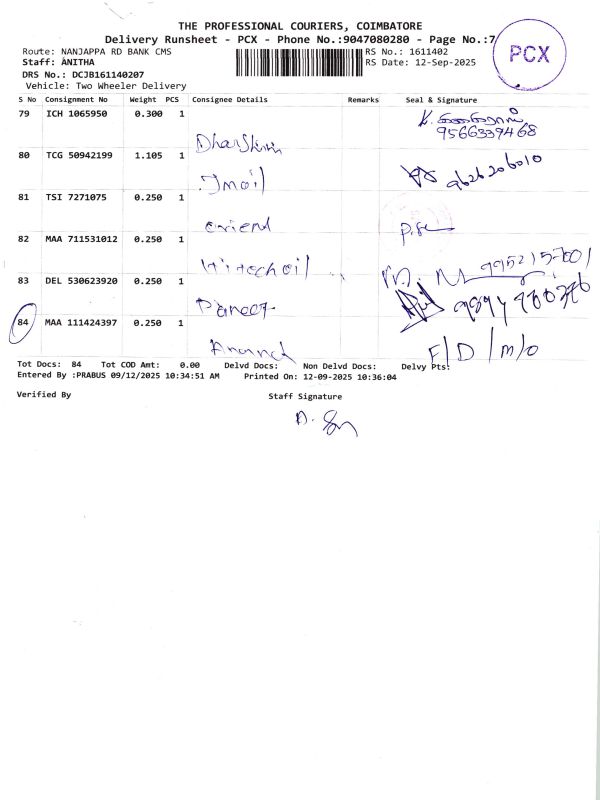 THE PROFESSIONAL COURIERS, COIMBATORE
Delivery Runsheet - PCX - Phone No.:9047080280 - Page No.:7
PCX
Route: NANJAPPA RD BANK CMS RS No.: 1611402
Staff: ANITHA RS Date: 12-Sep-2025
DRS No.: DCJB161140207
Vehicle: Two Wheeler Delivery
S No Consignment No Weight PCS Consignee Details Remarks Seal & Signature
79 ICH 1065950 0.300 1
9566339468
80 TCG 50942199 1.105 1
9626206010
81 TSI 7271075 0.250 1
oriend
82 MAA 711531012 0.250 1
Hitech oil
83 DEL 530623920 0.250 1
84 MAA 111424397 0.250 1
F/D/m/o
Tot Docs: 84 Tot COD Amt: 0.00 Delvd Docs: Non Delvd Docs: Delvy Pts:
Entered By :PRABUS 09/12/2025 10:34:51 AM Printed On: 12-09-2025 10:36:04
Verified By Staff Signature